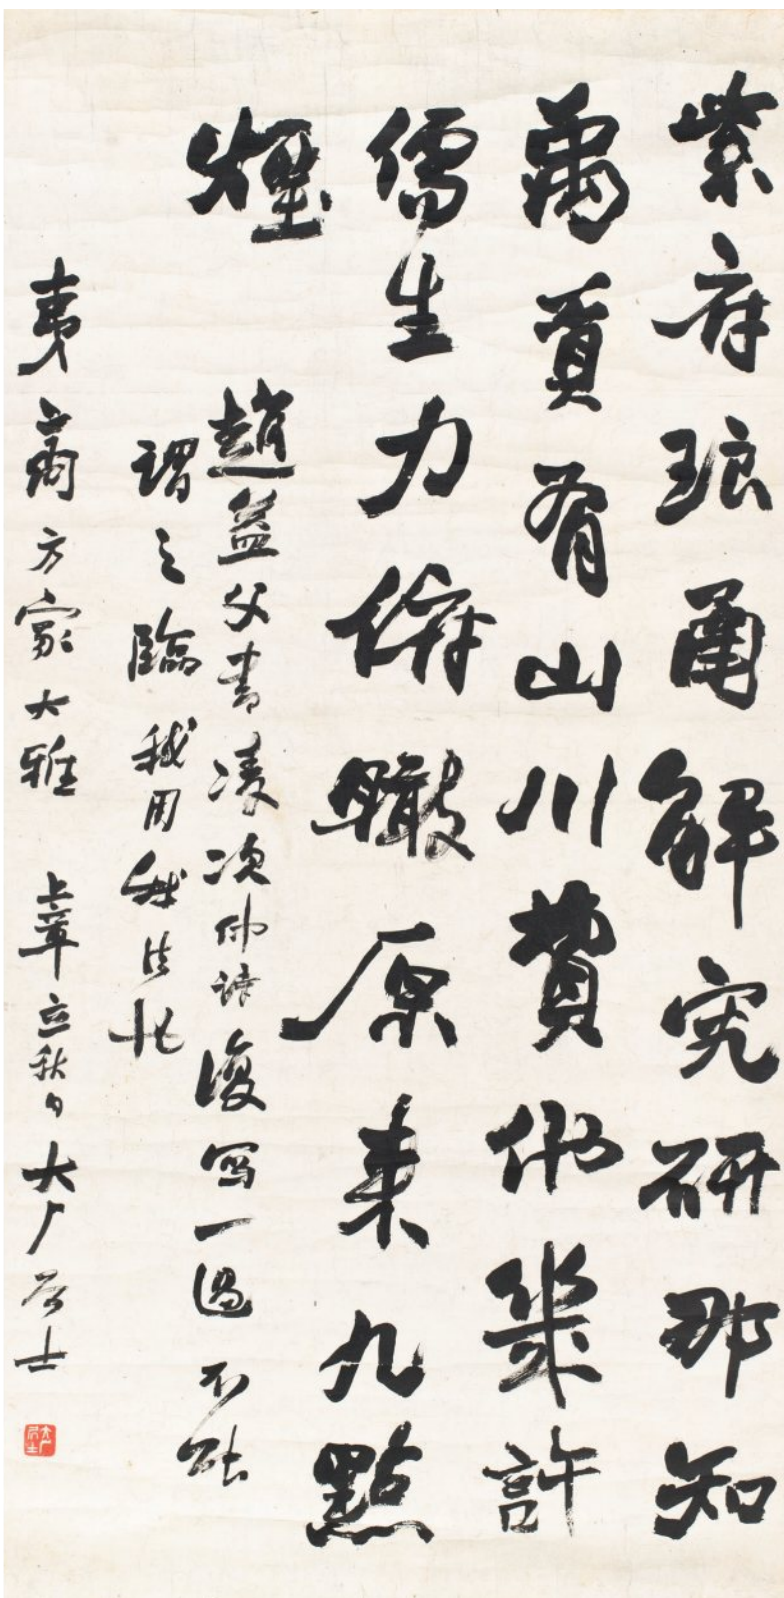 紫府琅函解究研那知
禹貢有山川費伊幾許
儒生力俯瞰原來九點
煙
趙益父書凌次仲詩復寫一過不能
謂之臨我用我法也
夷方家大雅 上章立秋日大厂居士
大厂居士